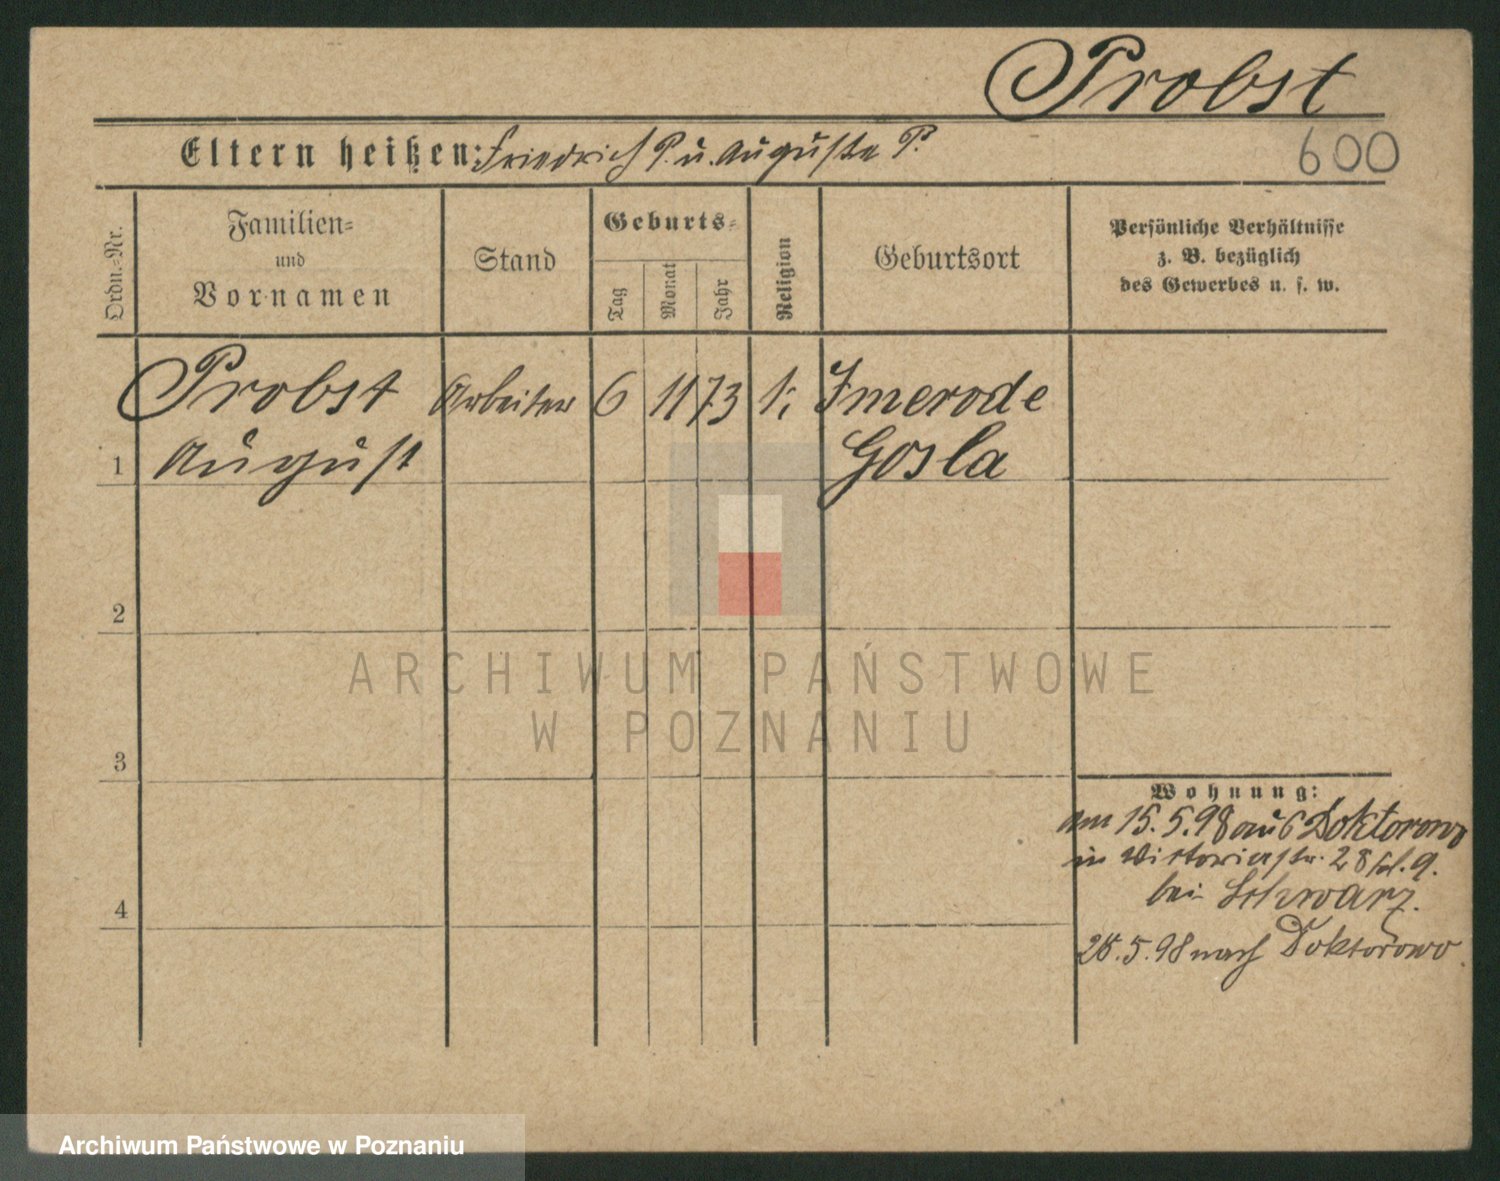 Probst
Eltern heißen: Friedrich P. u. Auguste P.
600
Ordn.-Nr.
Familien-
und
Vornamen
Stand
Geburts-
Tag
Monat
Jahr
Religion
Geburtsort
Persönliche Verhältnisse
z. B. bezüglich
des Gewerbes u. s. w.
Probst Arbeiter 6 11 73 Imerode
1 August Gosla
2
ARCHIWUM PAŃSTWOWE
W POZNANIU
3
Wohnung:
am 15.5.98 aus Doktorowo
in Victoriastr. 28
bei Schwarz.
4
28.5.98 nach Doktorowo.
Archiwum Państwowe w Poznaniu